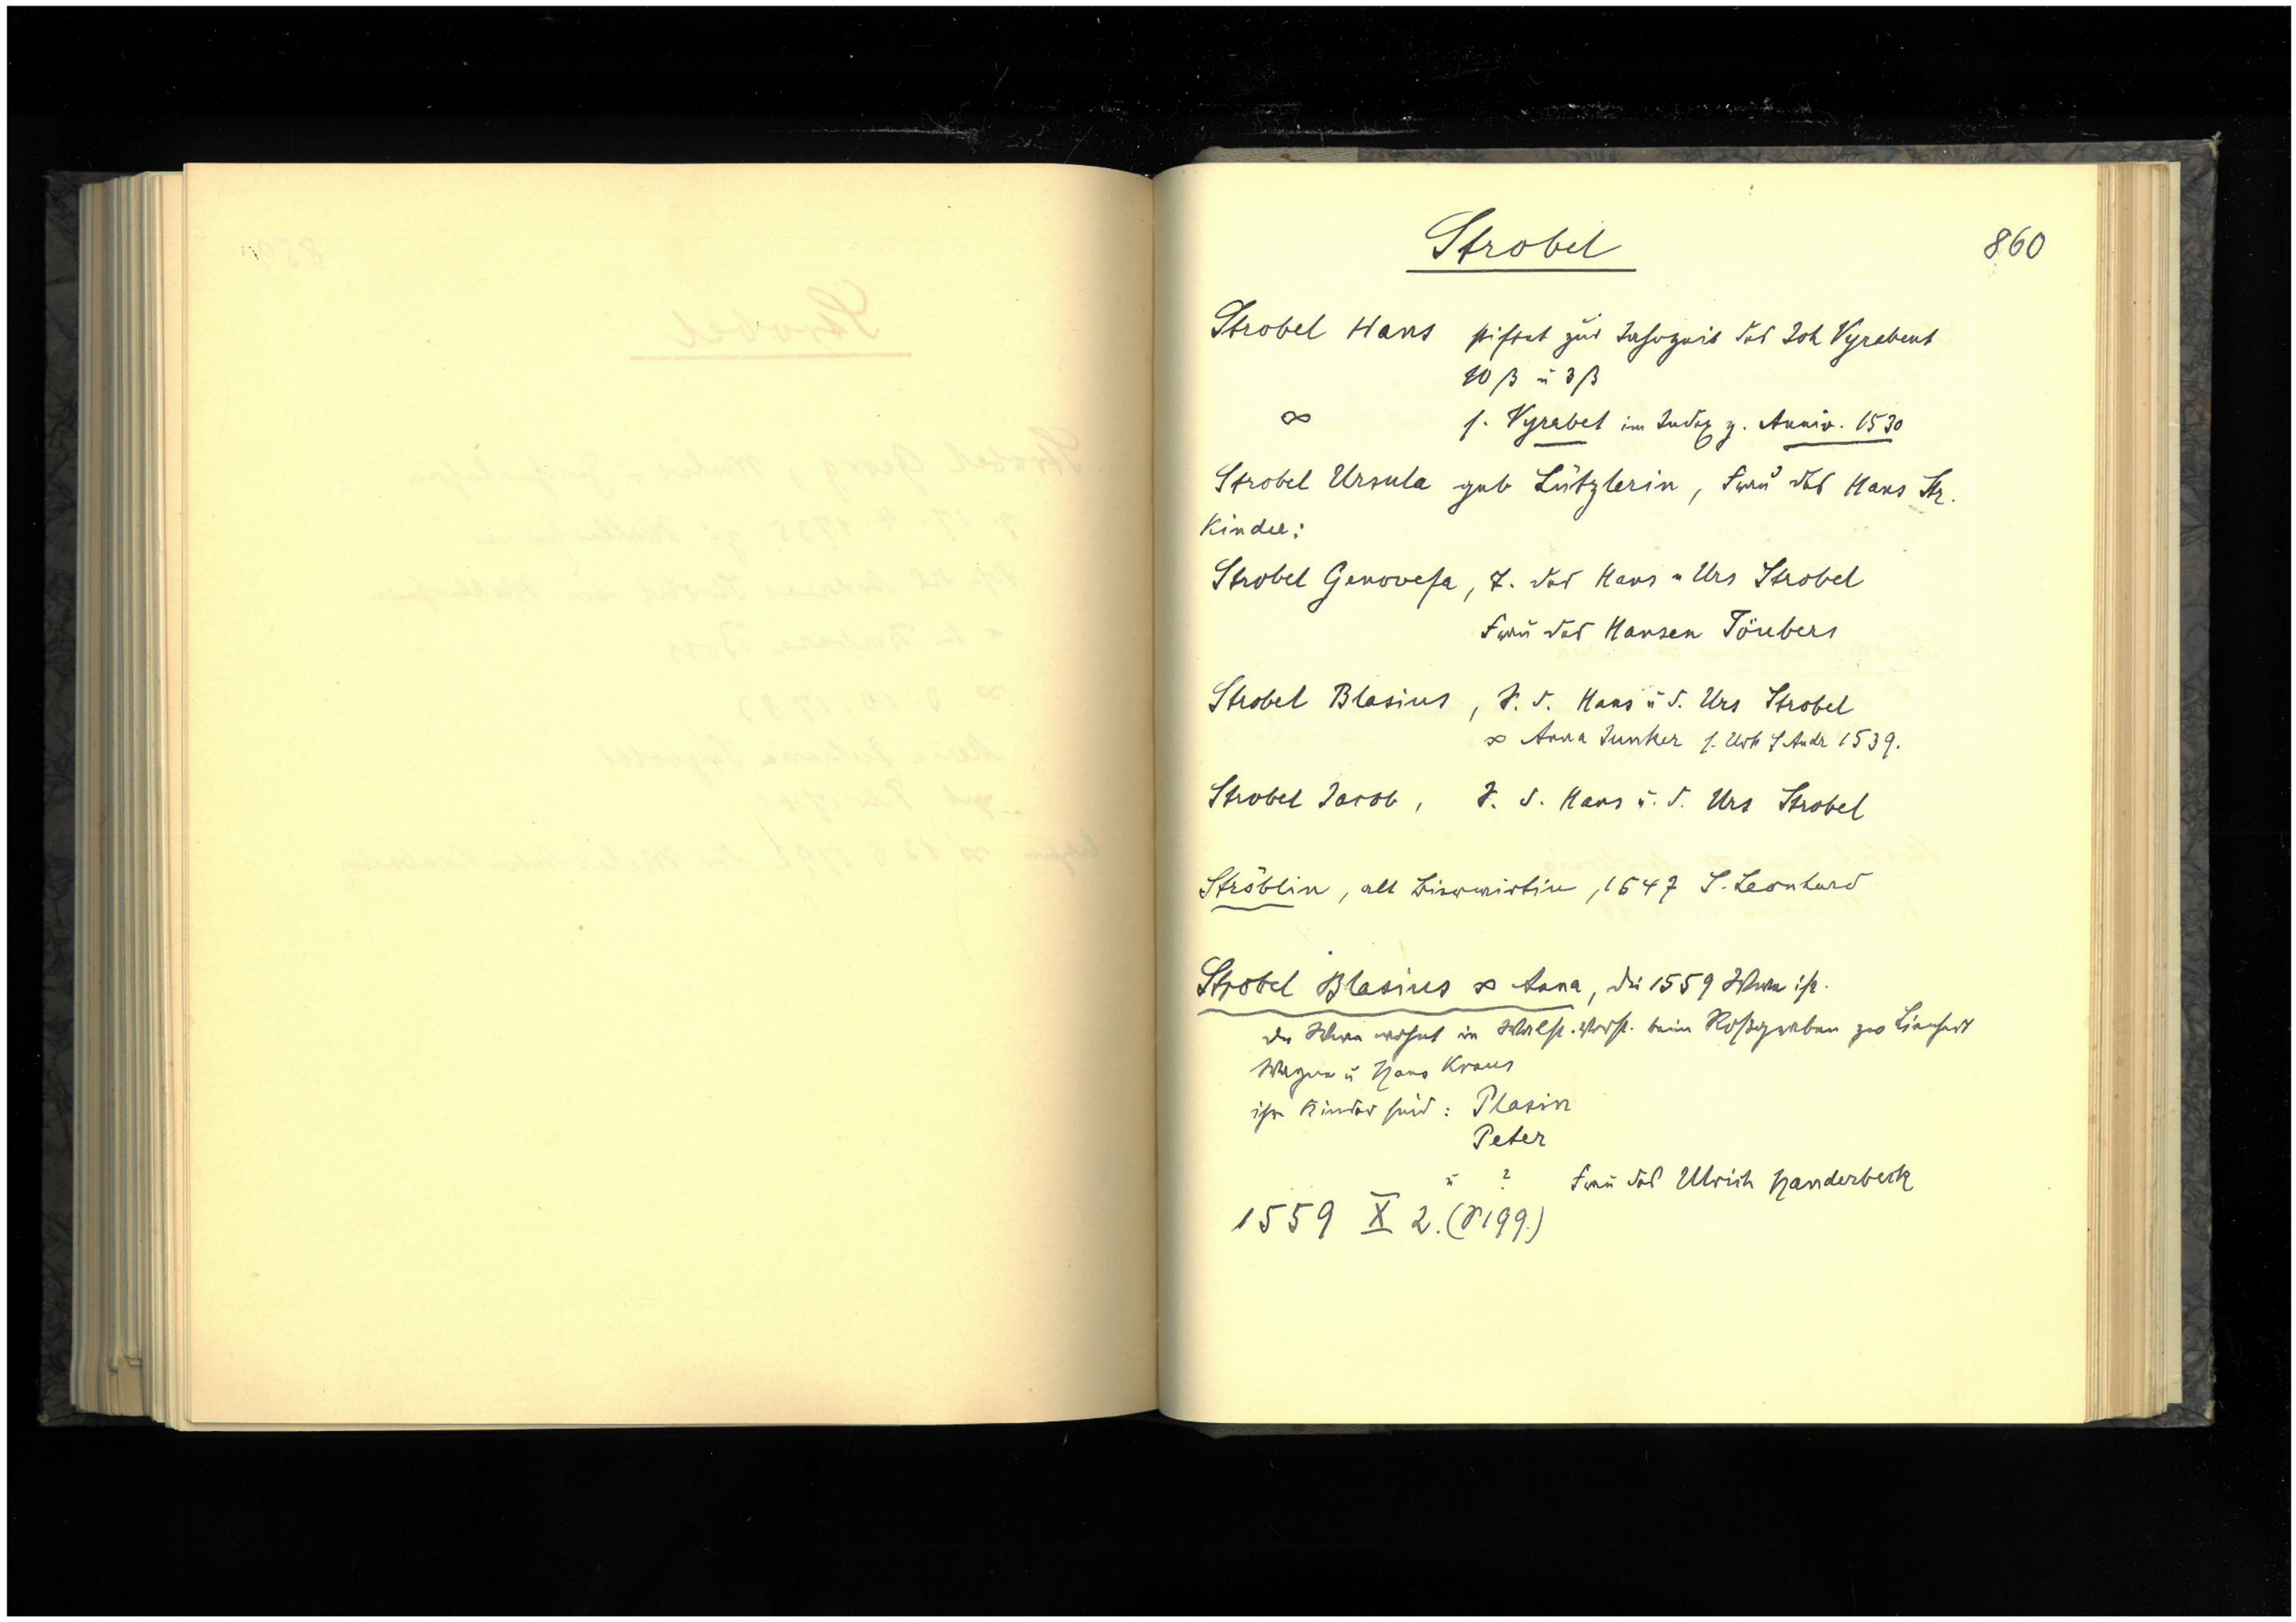 Strobel
860
Strobel Hans stiftet zur Jahrzeit des Joh Vyrabent
10 ß u 3 ß
∞ s. Vyrabet im Index z. Anniv. 1530
Strobel Ursula geb Lützlerin, Frau des Hans Str.
Kinder:
Strobel Genovefa, T. des Hans u Urs Strobel
Frau des Hansen Töubers
Strobel Blasius, S. d. Hans u d. Urs Strobel
∞ Anna Junker s. Urk S Andr 1539.
Strobel Jacob, S. d. Hans u. d. Urs Strobel
Ströblin, alt, 1547 S. Leonhard
Strobel Blasius ∞ Anna, die 1559 Wwe ist.
die Wwe wohnt in beim Roßgraben zw Lienhart
Wagner u Hans Kraus
ihre Kinder sind: Plasin
Peter
u ? Frau des Ulrich Handerbeck
1559 X 2. (S 199.)